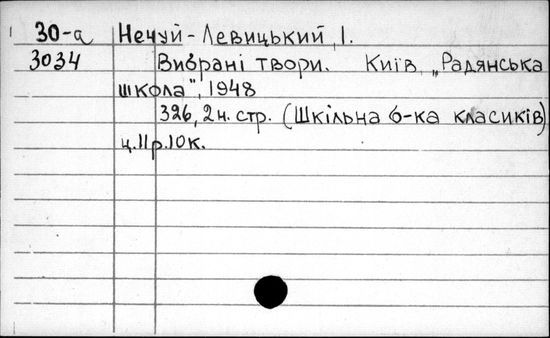 30-а Нечуй-Левицький, І.
3034 Вибрані твори. Київ, „Радянська
школа", 1948
326, 2 н. стр. (Шкільна б-ка класиків)
ц. 11 р. 10 к.